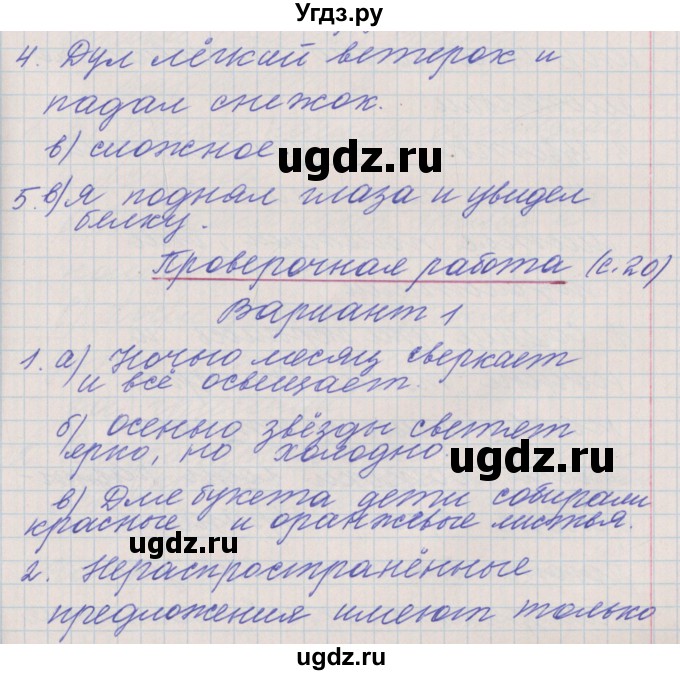 Угдз.ру
4. Дул лёгкий ветерок и
падал снежок.
в) сложное
ugdz.ru
5. в) я поднял глаза и увидел
белку.
Проверочная работа (с.20)
Вариант 1
1. а) Ночью месяц сверкает
и всё освещает.
б) осенью звёзды светят
ярко, но холодно
ugdz.ru
в) Для букета дети собирали
красные и оранжевые листья.
ugdz.ru
2. Нераспространённые
предложения имеют только
ugdz.ru